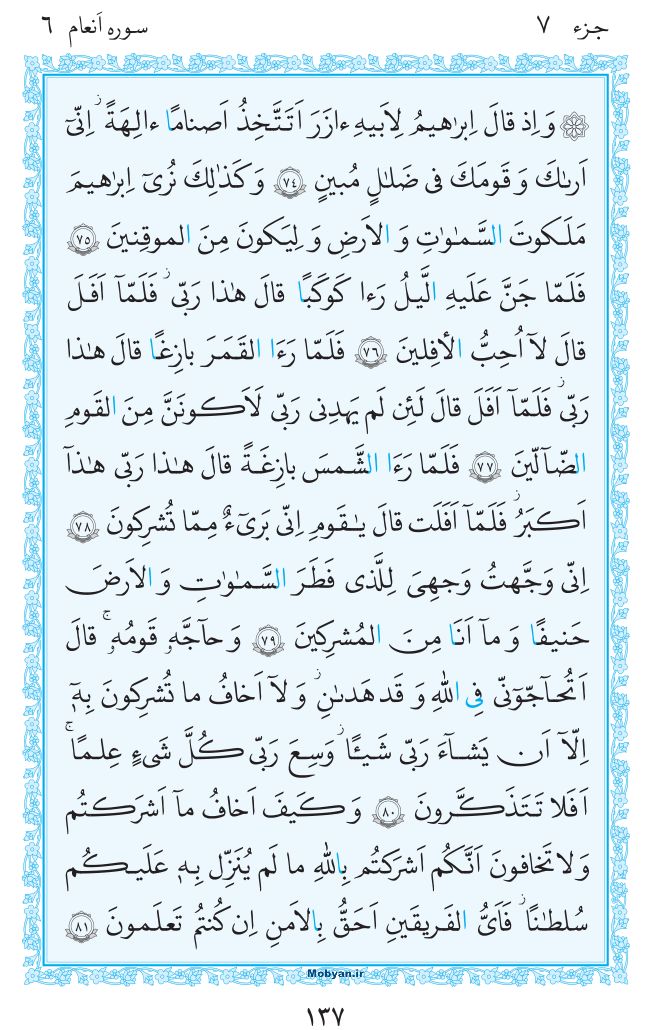 جزء ٧
سوره اَنعام ٦
۞ وَ اِذ قالَ اِبرٰهیمُ لِاَبیهِ ءازَرَ اَتَتَّخِذُ اَصنامًا ءالِهَةً ۖ اِنّیٓ
اَرىٰكَ وَ قَومَكَ فی ضَلٰلٍ مُبینٍ ﴿٧٤﴾ وَ كَذٰلِكَ نُریٓ اِبرٰهیمَ
مَلَكوتَ السَّمٰوٰتِ وَ الاَرضِ وَ لِیَكونَ مِنَ الموقِنینَ ﴿٧٥﴾
فَلَمّا جَنَّ عَلَیهِ الَّیلُ رَءا كَوكَبًا قالَ هٰذا رَبّی ۖ فَلَمّآ اَفَلَ
قالَ لآ اُحِبُّ الأفِلینَ ﴿٧٦﴾ فَلَمّا رَءَا القَمَرَ بازِغًا قالَ هٰذا
رَبّی ۖ فَلَمّآ اَفَلَ قالَ لَئِن لَم یَهدِنی رَبّی لَاَكونَنَّ مِنَ القَومِ
الضّآلّینَ ﴿٧٧﴾ فَلَمّا رَءَا الشَّمسَ بازِغَةً قالَ هٰذا رَبّی هٰذآ
اَكبَرُ ۖ فَلَمّآ اَفَلَت قالَ یٰقَومِ اِنّی بَریٓءٌ مِمّا تُشرِكونَ ﴿٧٨﴾
اِنّی وَجَّهتُ وَجهِیَ لِلَّذی فَطَرَ السَّمٰوٰتِ وَ الاَرضَ
حَنیفًا وَ مآ اَنَا مِنَ المُشرِكینَ ﴿٧٩﴾ وَ حآجَّهٗ قَومُهٗ ۚ قالَ
اَتُحآجّوٓنّی فِی اللّٰهِ وَ قَد هَدىٰنِ ۚ وَ لآ اَخافُ ما تُشرِكونَ بِهٖٓ
اِلّآ اَن یَشآءَ رَبّی شَیئًا ۗ وَسِعَ رَبّی كُلَّ شَیءٍ عِلمًا ۗ
اَفَلا تَتَذَكَّرونَ ﴿٨٠﴾ وَ كَیفَ اَخافُ مآ اَشرَكتُم
وَ لا تَخافونَ اَنَّكُم اَشرَكتُم بِاللّٰهِ ما لَم یُنَزِّل بِهٖ عَلَیكُم
سُلطٰنًا ۚ فَاَیُّ الفَریقَینِ اَحَقُّ بِالاَمنِ اِن كُنتُم تَعلَمونَ ﴿٨١﴾
Mobyan.ir
١٣٧